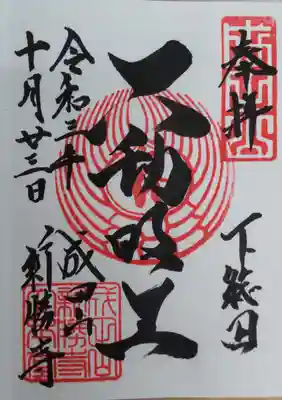 奉拝
下総国
不動明王
成田山
新勝寺
令和三年
十月廿三日